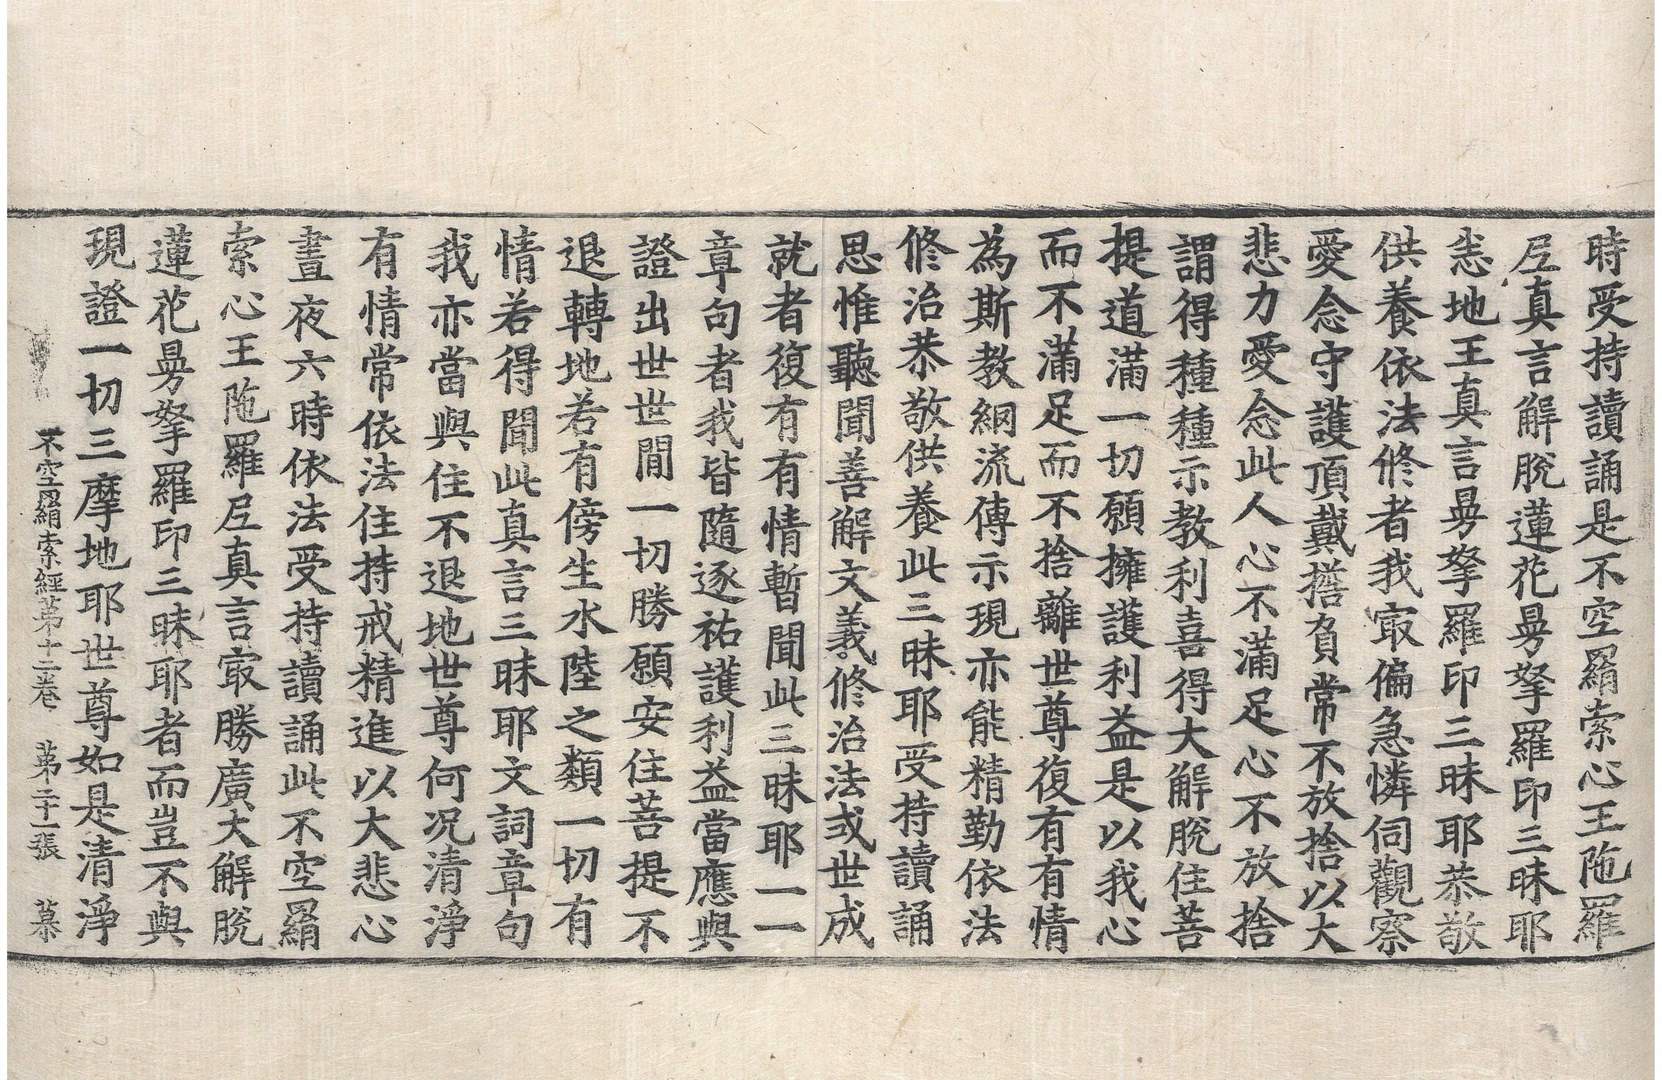 時受持讀誦是不空羂索心王陁羅
尼真言解脫蓮花曼拏羅印三昧耶
恚地王真言曼拏羅印三昧耶恭敬
供養依法修者我㝡偏急憐伺觀察
愛念守護頂戴搭負常不放捨以大
悲力愛念此人心不滿足心不放捨
謂得種種示教利喜得大解脫住菩
提道滿一切願擁護利益是以我心
而不滿足而不捨離世尊復有有情
為斯教網流傳示現亦能精勤依法
修治恭敬供養此三昧耶受持讀誦
思惟聽聞善解文義修治法或世成
就者復有有情暫聞此三昧耶一一
章句者我皆隨逐祐護利益當應與
證出世世間一切勝願安住菩提不
退轉地若有傍生水陸之類一切有
情若得聞此真言三昧耶文詞章句
我亦當與住不退地世尊何況清淨
有情常依法住持戒精進以大悲心
晝夜六時依法受持讀誦此不空羂
索心王陁羅尼真言㝡勝廣大解脫
蓮花曼拏羅印三昧耶者而豈不與
現證一切三摩地耶世尊如是清淨
不空羂索經第十二卷 第二十一張 慕